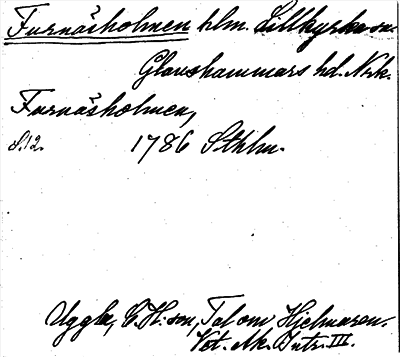 Furnäsholmen hlm. Lillkyrka sn.
Glanshammars hd. Nrk.
Furnäsholmen,
S.12. 1786 Sthlm.
Uggla, C.H:son, Tal om Hjelmaren.
Vet. Ak. Intr. III.